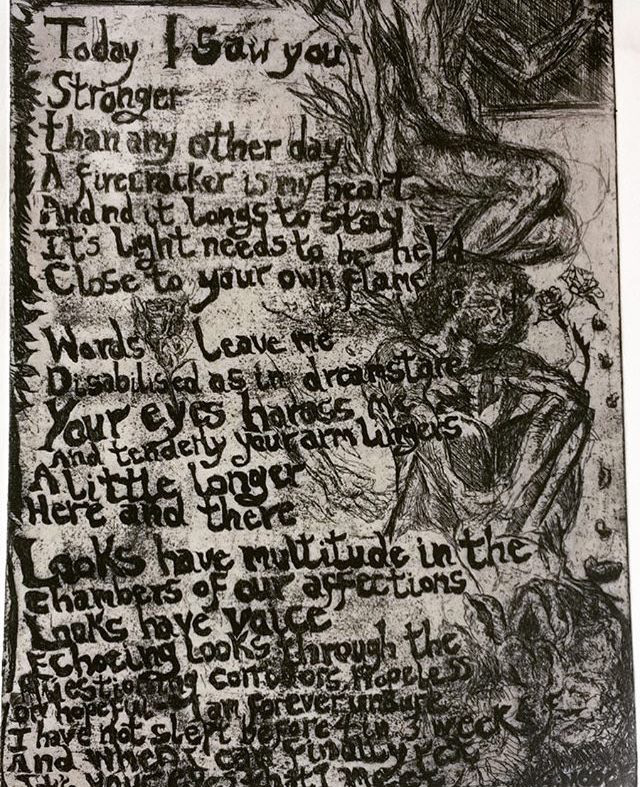 Today I saw you
Stronger
than any other day
A firecracker is my heart
And nd it Longs to stay
It's light needs to be held
Close to your own flame
Words Leave me
Disabilised as in dreamstare
Your eyes harass me
And tenderly your arm Lingers
A Little Longer
Here and there
Looks have multitude in the
Chambers of our affections
Looks have voice
Echoeing Looks through the
Questioning corridors, Hopeless
or hopeful I am forever unsure
I have not slept before 4 in 3 weeks
And when I can finally
It's your eyes that I meet